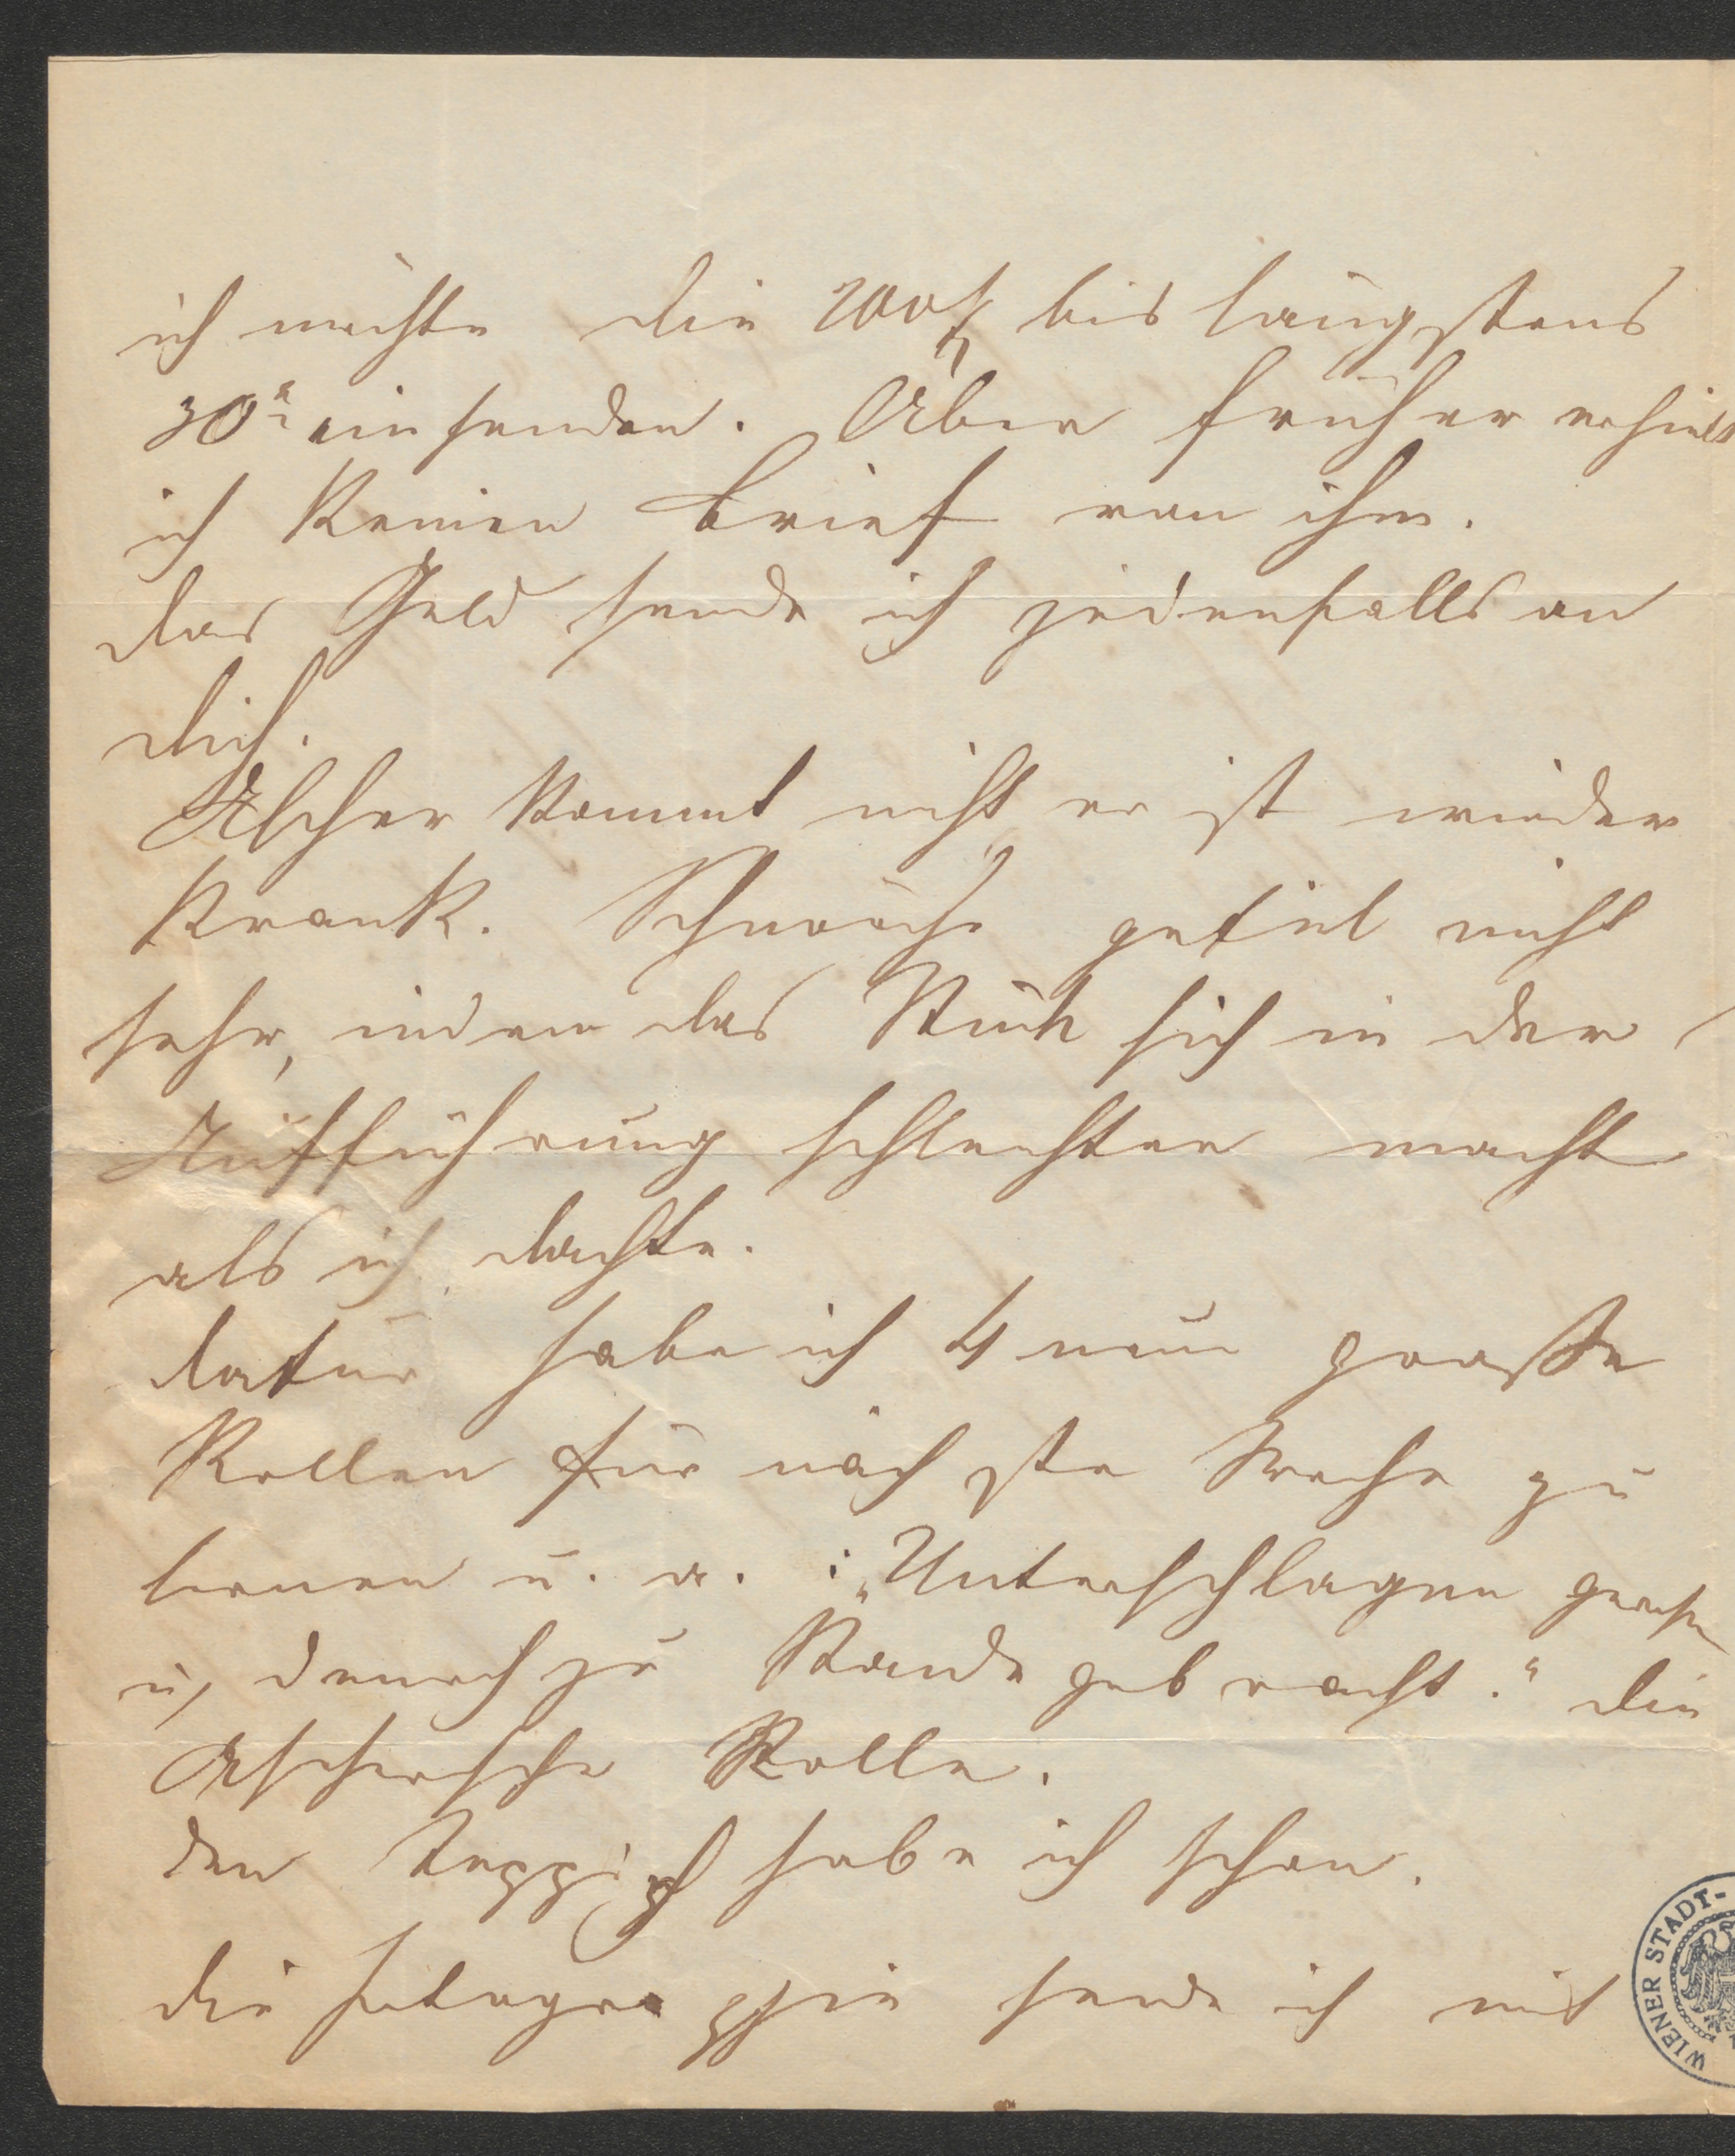 ich möchte die 200 f bis längstens
30n einsenden. Aber früher erhielt
ich keinen Brief von ihm.
das Geld sende ich jedenfalls an
dich.
Ascher kommt nicht er ist wieder
krank. Schwäche gefiel nicht
sehr, indem das Stück sich in der
Aufführung schlechter macht
als ich dachte.
dafür habe ich 4 neue große
Rollen für nächste Woche zu
lernen u. a. : „Unterschlagen
u, zu Stande gebracht." die
Aschersche Rolle.
den Teppich habe ich schon.
die Fotographie sende ich mit
WIENER STADT-